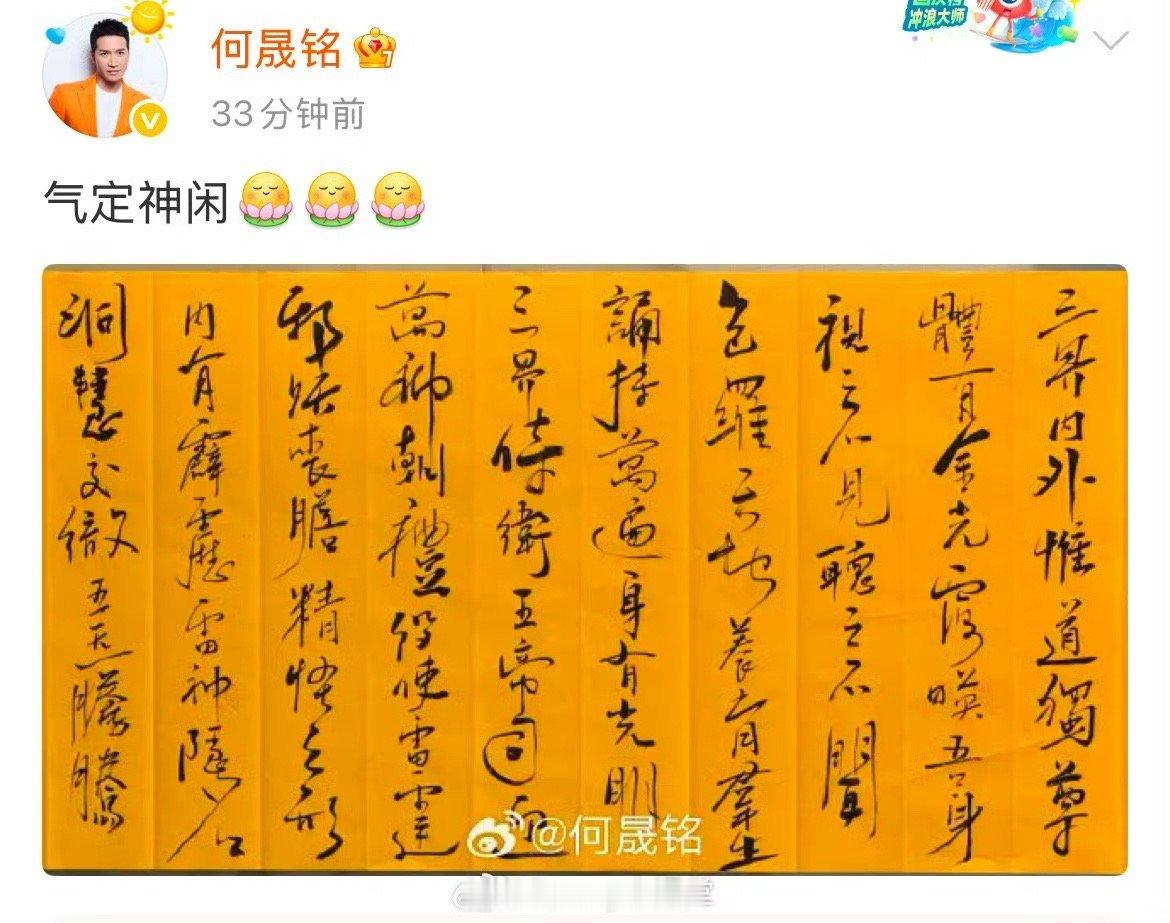 冲浪大师
何晟铭
33分钟前
气定神闲
三界内外惟道獨尊
體有金光覆映吾身
視之不見聽之不聞
包羅天地養育羣生
誦持萬遍身有光明
三界侍衛五帝司迎
萬神朝禮役使雷霆
邪妖喪膽精怪亡形
内有霹靂雷神隱名
洞慧交徹五炁騰騰
@何晟铭